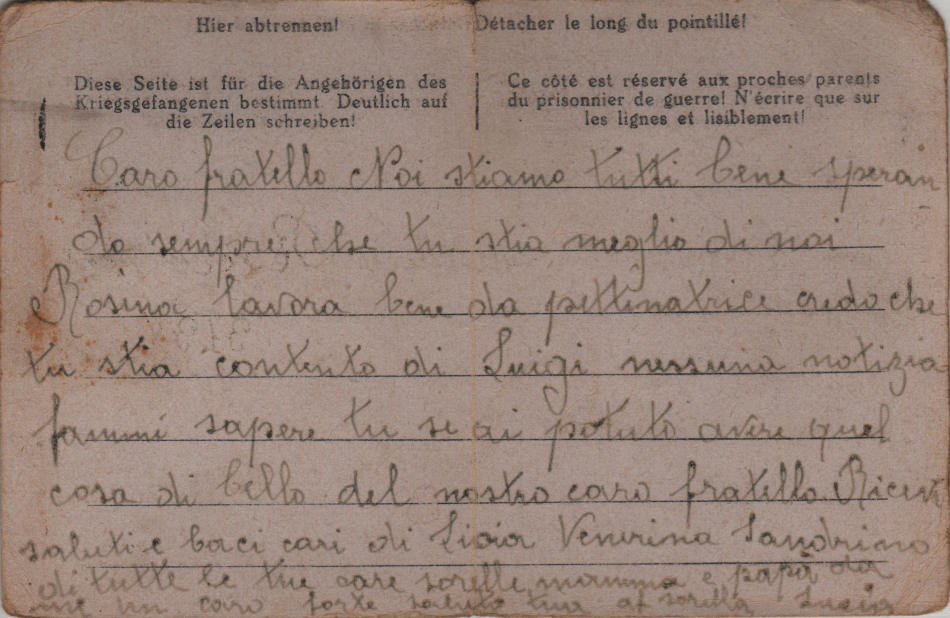 Hier abtrennen!
Détacher le long du pointillé!
Diese Seite ist für die Angehörigen des
Kriegsgefangenen bestimmt. Deutlich auf
die Zeilen schreiben!
Ce côté est réservé aux proches parents
du prisonnier de guerre! N'écrire que sur
les lignes et lisiblement!
Caro fratello Noi stiamo tutti bene speran
do sempre che tu stia meglio di noi
Rosina lavora bene da pettinatrice credo che
tu stia contento di Luigi nessuna notizia
fammi sapere tu se ai potuto avere quel
cosa di bello del nostro caro fratello Ricevi
saluti e baci cari di Venerina Sandrino
di tutte le tue care sorelle mamma e papà da
me un caro forte saluto tua af sorella Lucia